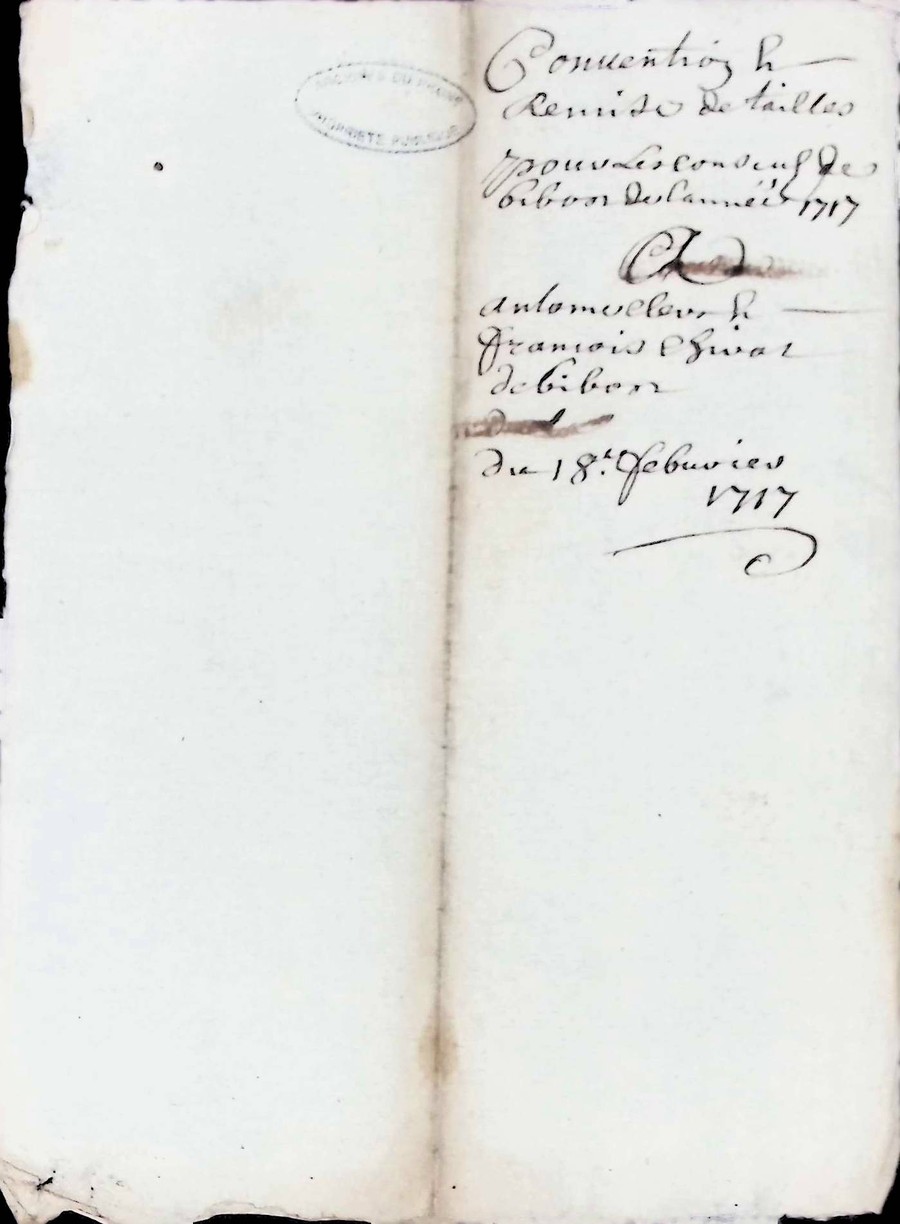 ARCHIVES DU RHONE
PROPRIETE PUBLIQUE
Conuention &
Remise de tailles
pour les consulz de
bibost de lannée 1717
A
antoine clerc &
francois Chirat
de bibost
du 18e. feburier
1717